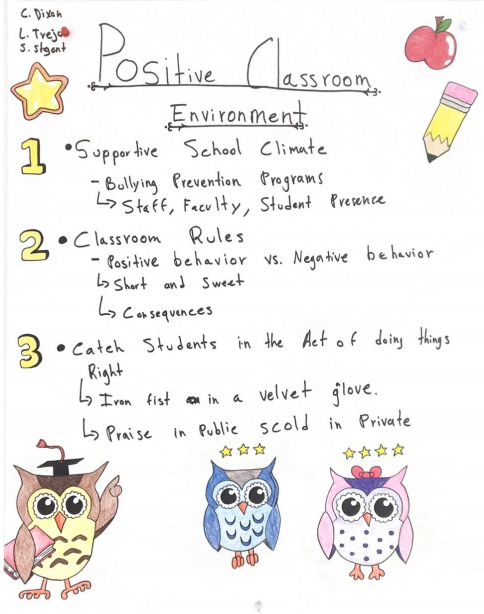 C. Dixon
L. Trejo
S. Stgent
Positive Classroom
Environment
1 • Supportive School Climate
- Bullying Prevention Programs
↳ Staff, Faculty, Student Presence
2 • Classroom Rules
- Positive behavior vs. Negative behavior
↳ Short and Sweet
↳ Consequences
3 • Catch Students in the Act of doing things
Right
↳ Iron fist in a velvet glove.
↳ Praise in Public scold in Private